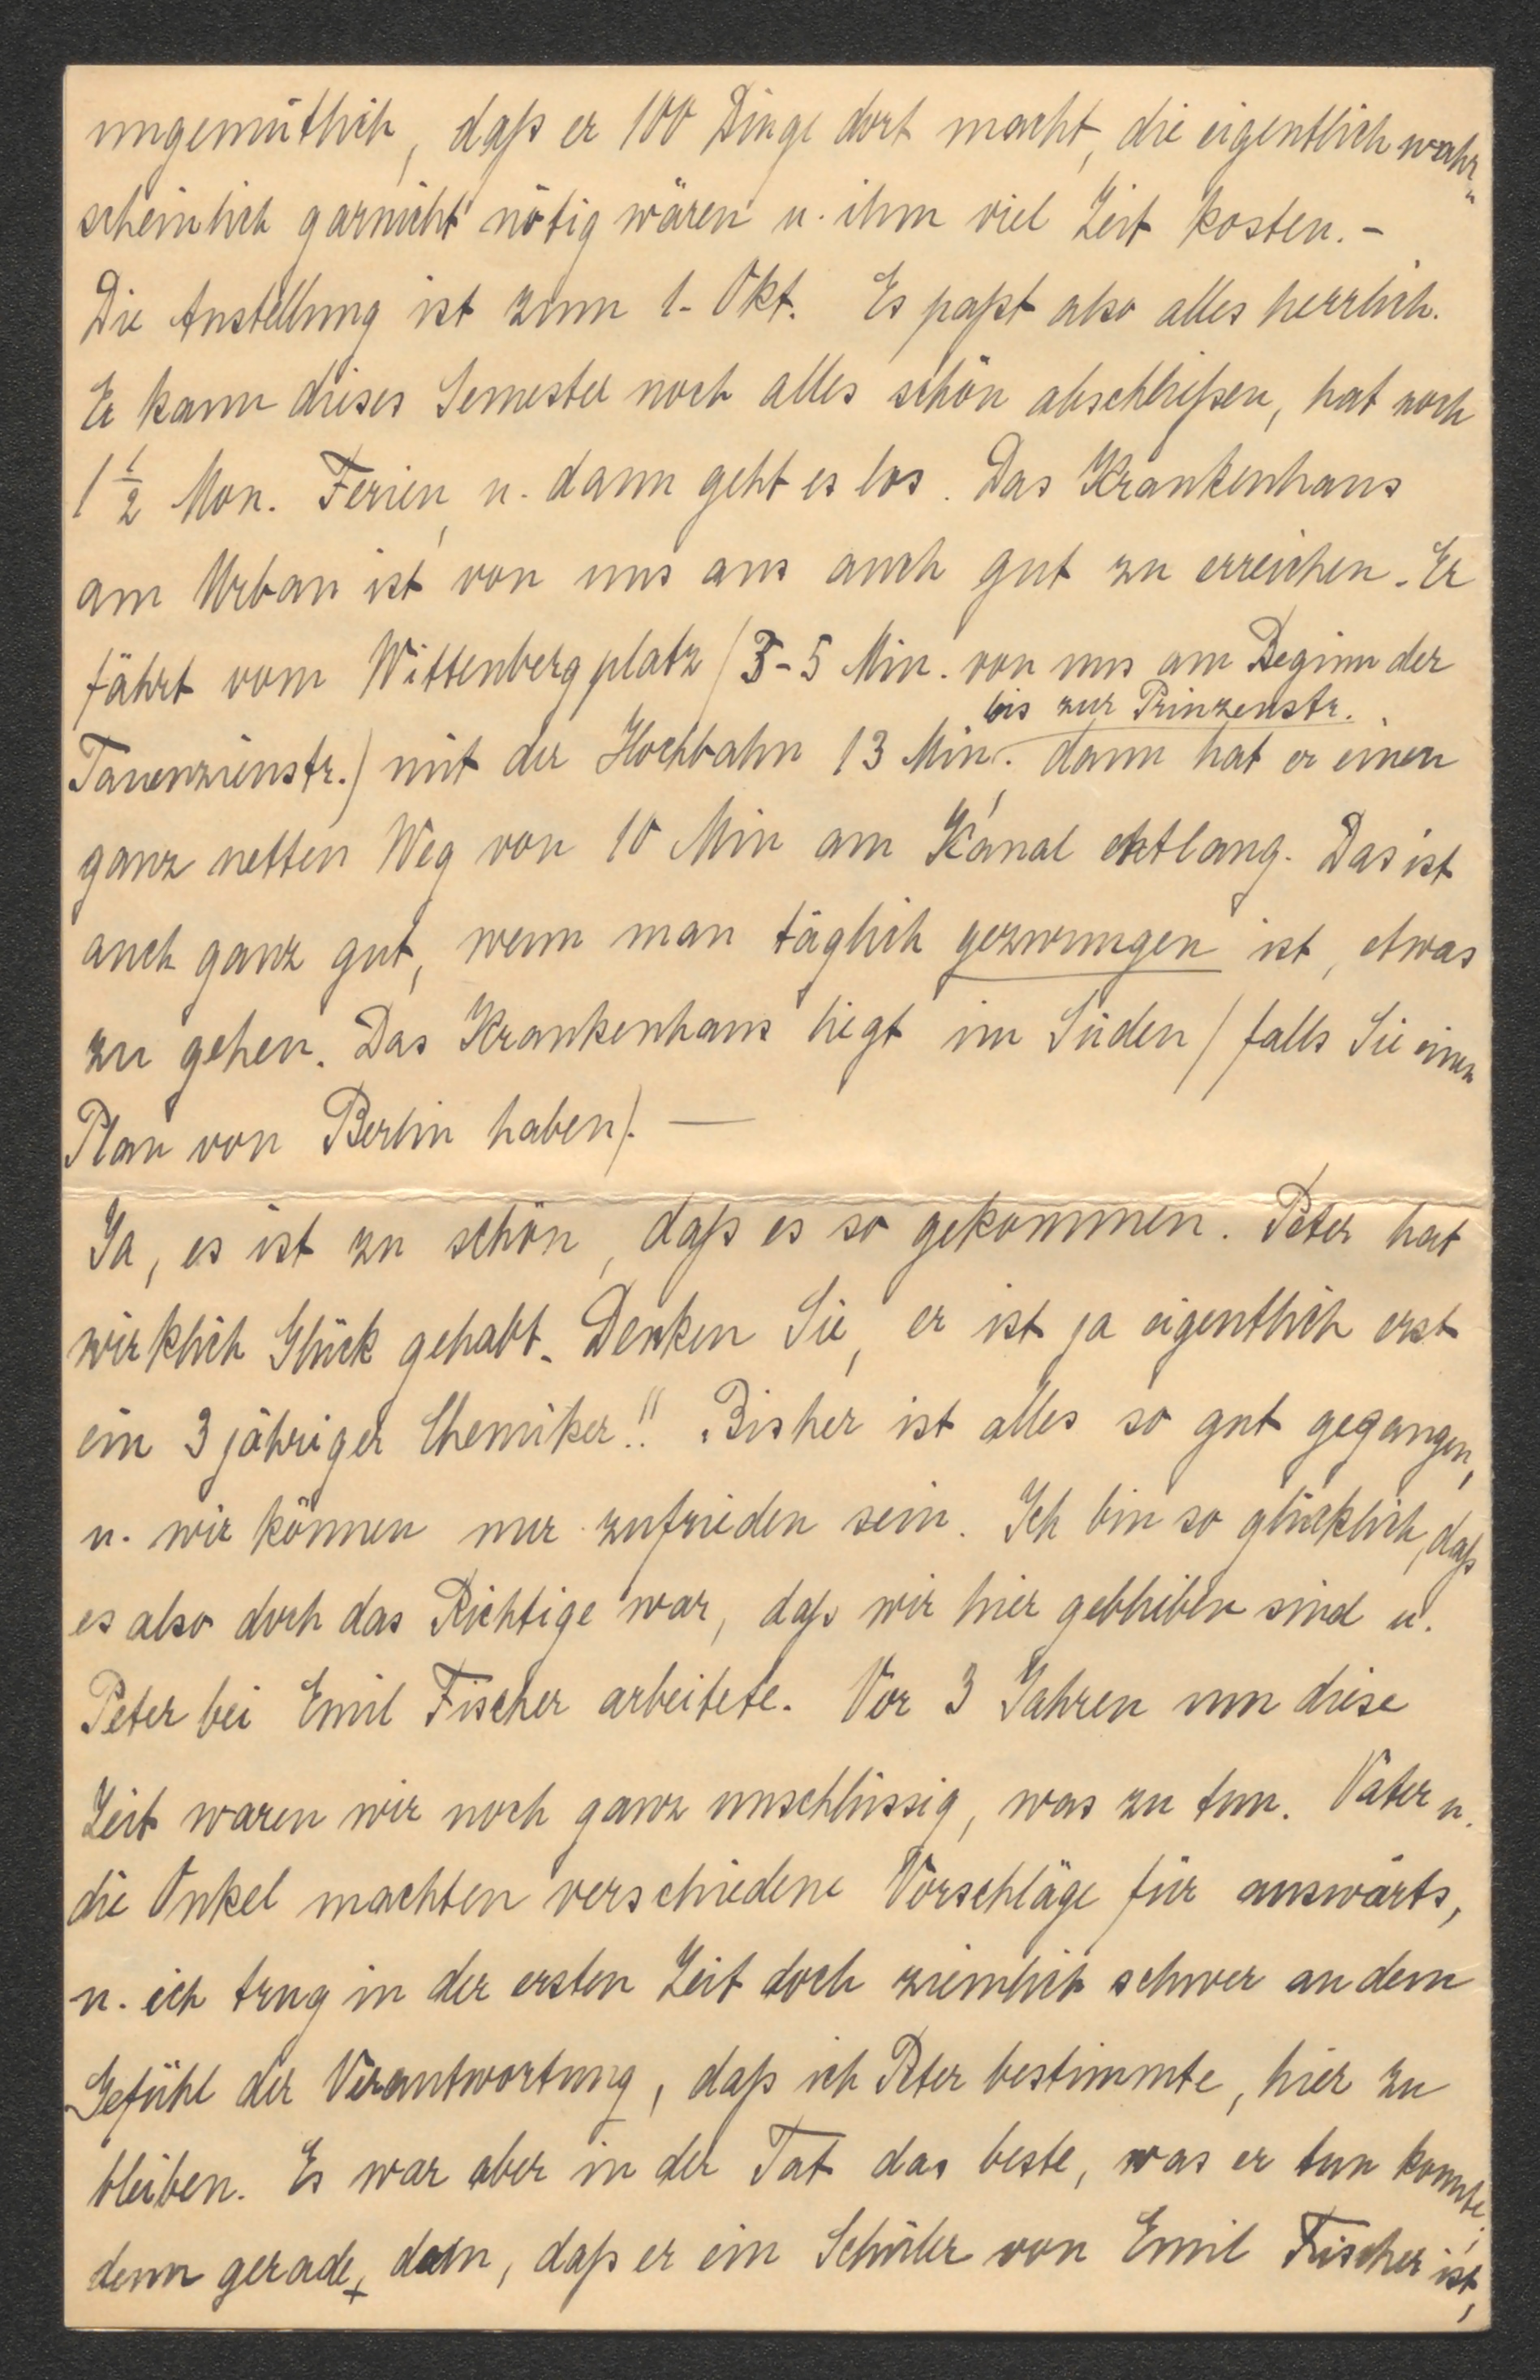 ungemütlich, daß er 100 Dinge dort macht, die eigentlich wahr-
scheinlich garnicht nötig wären u. ihm viel Zeit kosten. –
Die Anstellung ist zum 1. Okt. Es paßt also alles herrlich.
Er kann dieses Semester noch alles schön abschließen, hat noch
1 1/2 Mon. Ferien, u. dann geht es los. Das Krankenhaus
am Urban ist von uns aus auch gut zu erreichen. Er
fährt vom Wittenbergplatz (3-5 Min. von uns am Beginn der
bis zur Prinzenstr.
Tauenzienstr.) mit der Hochbahn 13 Min., dann hat er einen
ganz netten Weg von 10 Min am Kanal entlang. Das ist
auch ganz gut, wenn man täglich gezwungen ist, etwas
zu gehen. Das Krankenhaus liegt im Süden (falls Sie einen
Plan von Berlin haben). —
Ja, es ist zu schön, daß es so gekommen. Peter hat
wirklich Glück gehabt. Denken Sie, er ist ja eigentlich erst
ein 3 jähriger Chemiker!! Bisher ist alles so gut gegangen,
u. wir können nur zufrieden sein. Ich bin so glücklich, daß
es also doch das Richtige war, daß wir hier geblieben sind u.
Peter bei Emil Fischer arbeitete. Vor 3 Jahren um diese
Zeit waren wir noch ganz unschlüssig, was zu tun. Vater u.
die Onkel machten verschiedene Vorschläge für auswärts,
u. ich trug in der ersten Zeit doch ziemlich schwer an dem
Gefühl der Verantwortung, daß ich Peter bestimmte, hier zu
bleiben. Es war aber in der Tat das beste, was er tun konnte,
denn gerade, daß er ein Schüler von Emil Fischer ist,